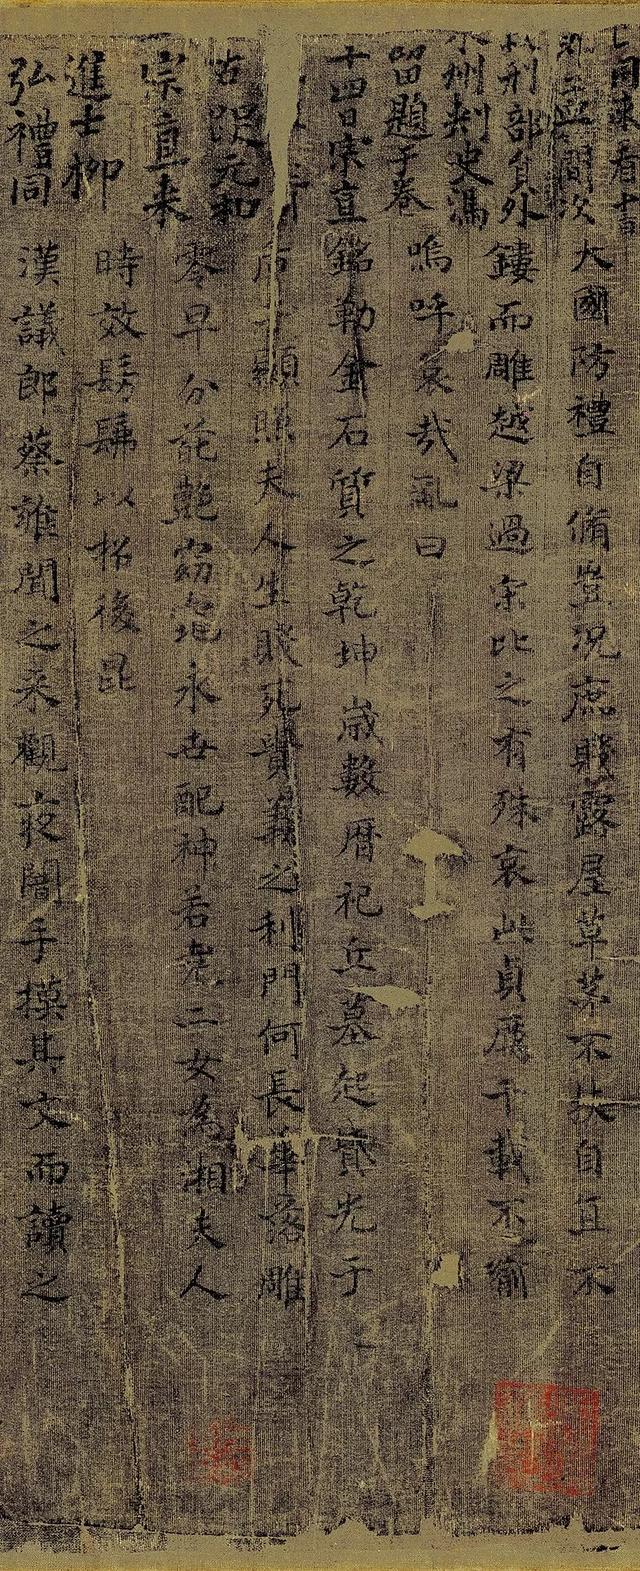 同来看
間次
刑部員外
州刺史馮
留題于卷
十四日宗直
元和
宗直来
進士柳
弘禮同
大國防禮自脩豈況庶賤露屋草茅不扶自直不
鏤而雕越梁過宋比之有殊哀此貞厲千載不渝
嗚呼哀哉亂曰
銘勒金石質之乾坤歲數曆祀丘墓起賁光于
后土顯照夫人生賤死貴義之利門何長華落雕
零早分葩艷窈窕永世配神若堯二女為湘夫人
時效髣髴以招後昆
漢議郎蔡雍聞之来觀夜闇手摸其文而讀之